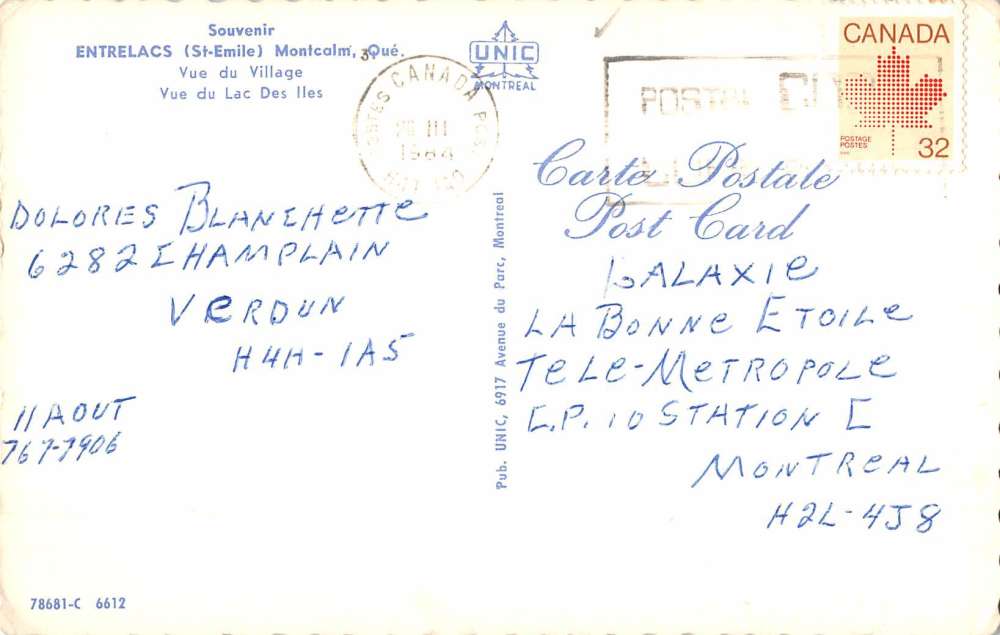 Souvenir
ENTRELACS (St-Emile) Montcalm, Qué.
Vue du Village
Vue du Lac Des Iles
UNIC
MONTREAL
CANADA
III
1984
POSTAL
CANADA
POSTAGE
POSTES
32
Carte Postale
Post Card
DOLORES BLANCHETTE
6282 CHAMPLAIN
VERDUN
H4H-1A5
11 AOUT
767-7906
Pub. UNIC, 6917 Avenue du Parc, Montreal
GALAXIE
LA BONNE ETOILE
TELE-METROPOLE
C.P. 10 STATION C
MONTREAL
H2L-4J8
78681-C 6612